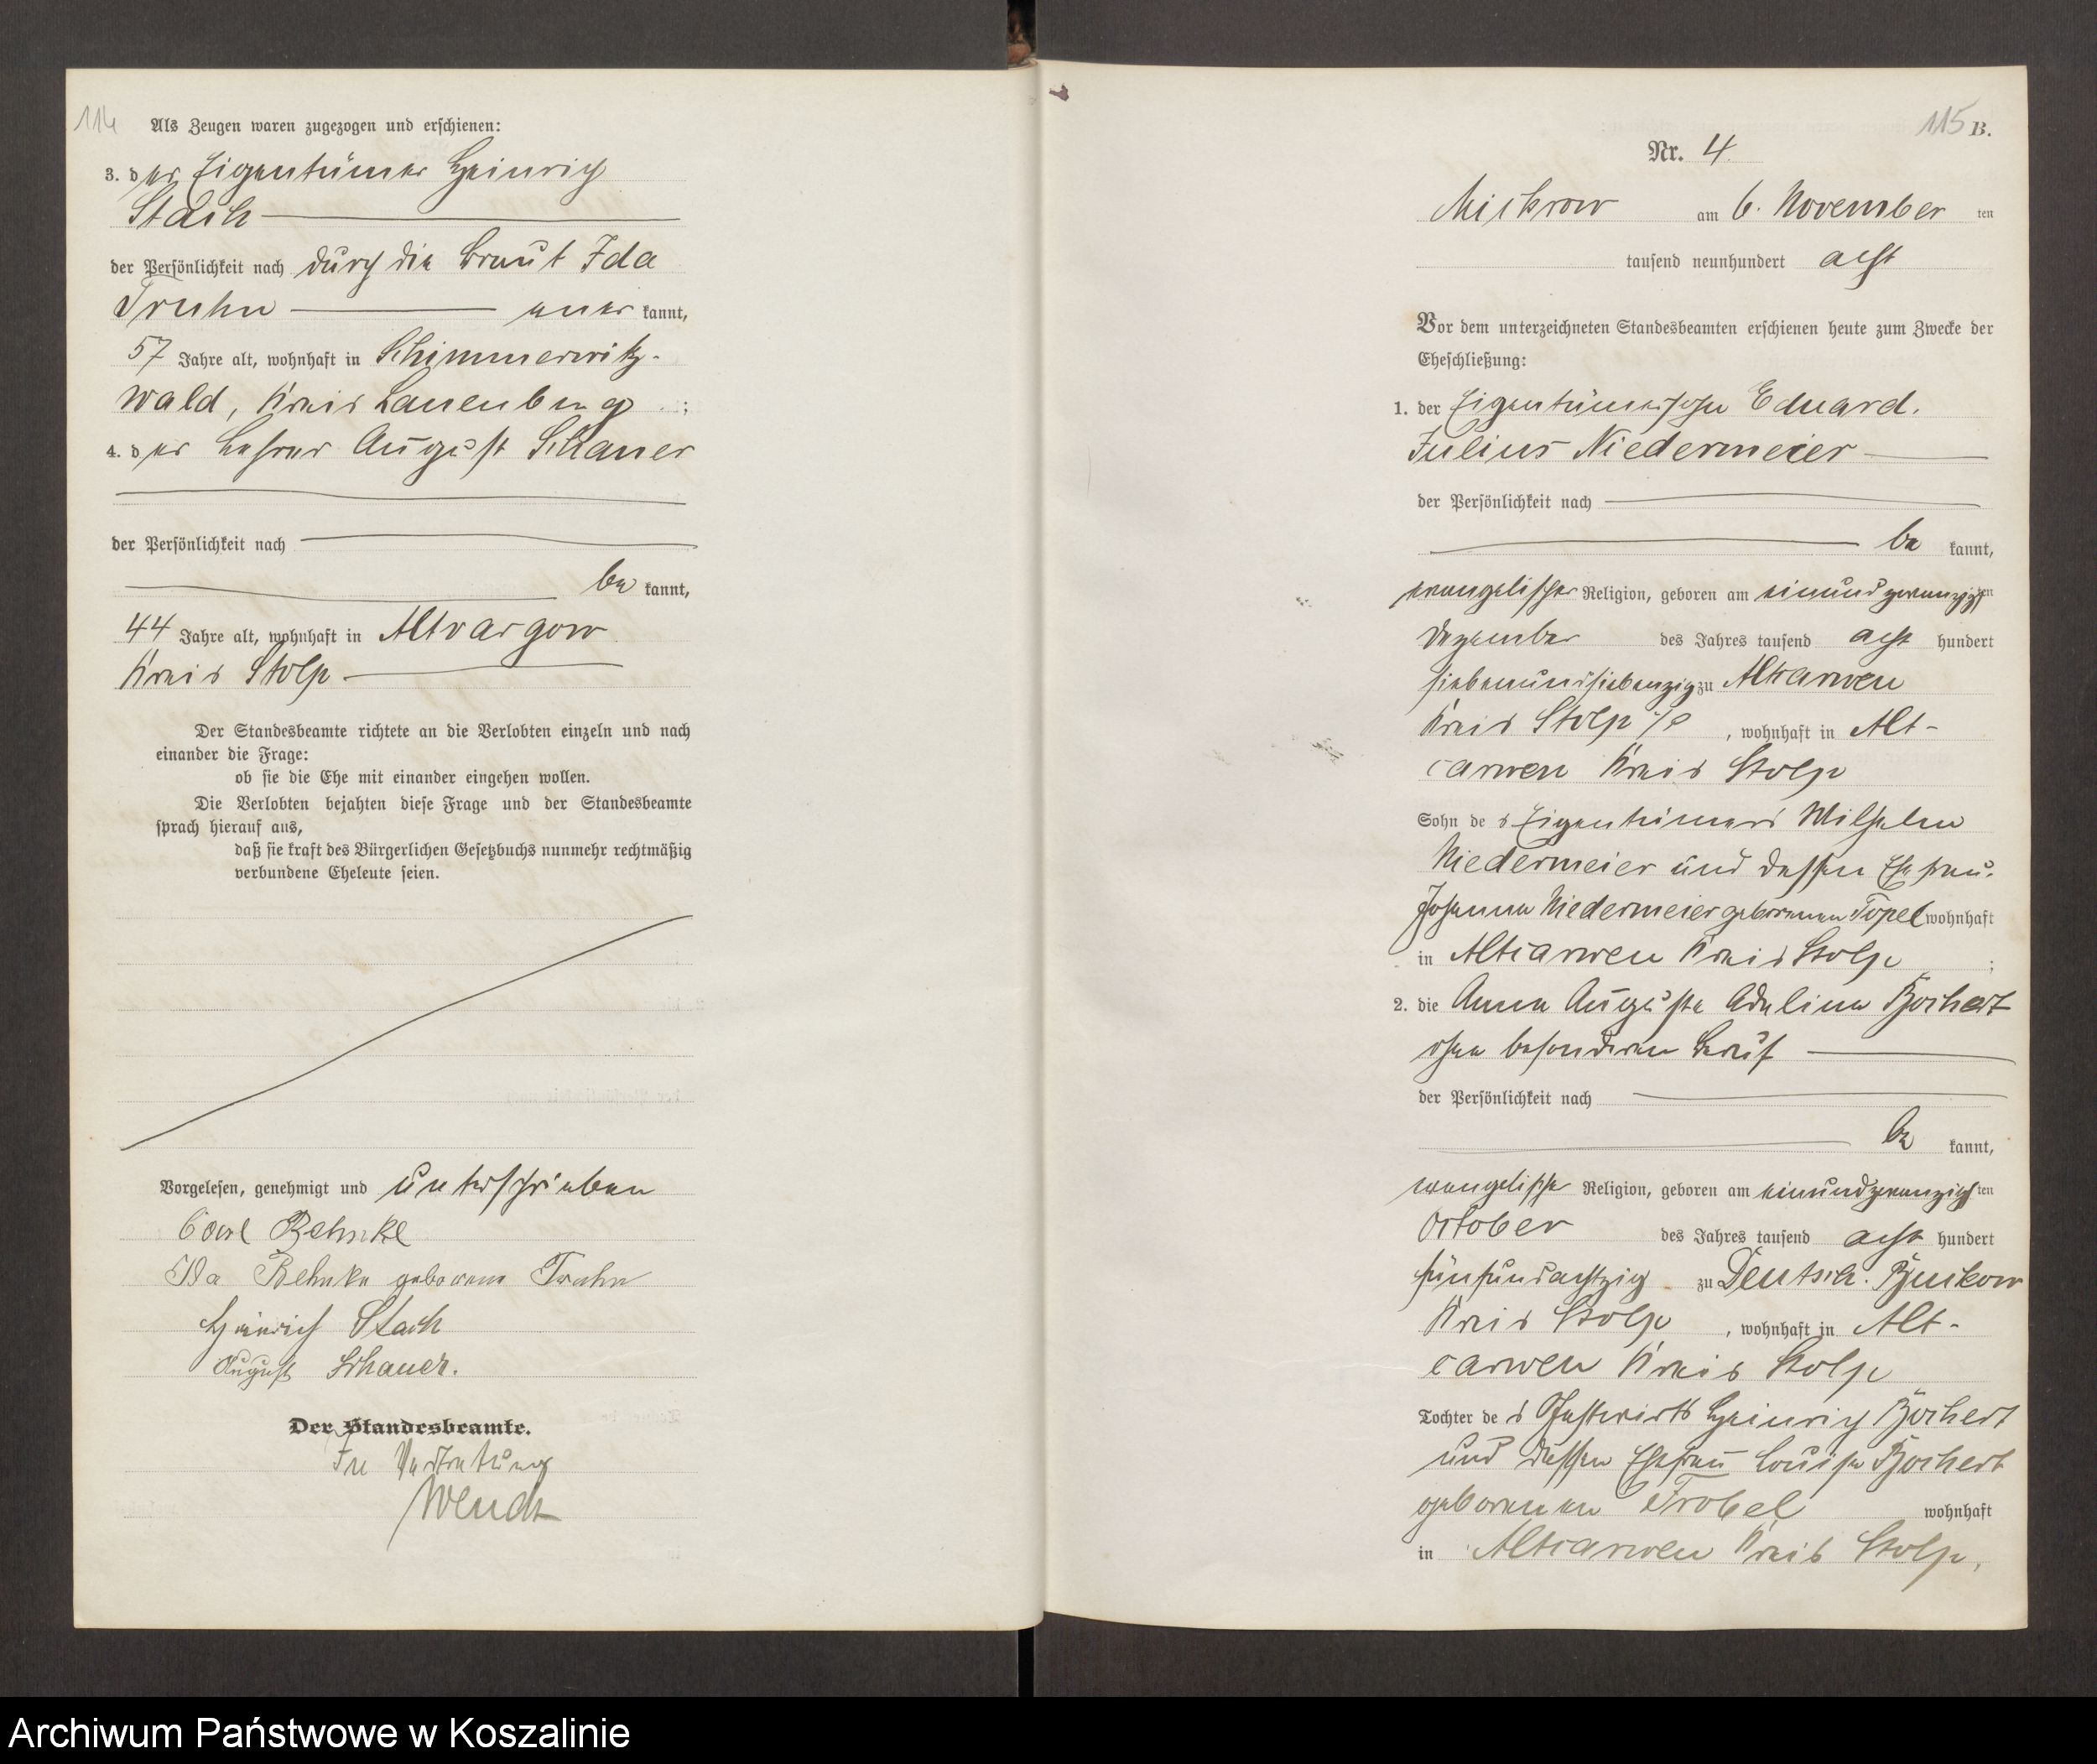 114
Als Zeugen waren zugezogen und erschienen:
3. der Eigentümer Heinrich
Stach
der Persönlichkeit nach durch die Braut Ida
Truhn anerkannt,
57 Jahre alt, wohnhaft in Schimmerwitz-
wald, Kreis Lauenburg;
4. der Lehrer August Schauer
der Persönlichkeit nach
bekannt,
44 Jahre alt, wohnhaft in Altvargow
Kreis Stolp
Der Standesbeamte richtete an die Verlobten einzeln und nach
einander die Frage:
ob sie die Ehe mit einander eingehen wollen.
Die Verlobten bejahten diese Frage und der Standesbeamte
sprach hierauf aus,
daß sie kraft des Bürgerlichen Gesetzbuchs nunmehr rechtmäßig
verbundene Eheleute seien.
Vorgelesen, genehmigt und unterschrieben
Carl Behnke
Ida Behnke geborene Truhn
Heinrich Stach
August Schauer.
Der Standesbeamte.
In Vertretung
Wendt
115 B.
Nr. 4.
Mickrow am 6. November ten
tausend neunhundert acht
Vor dem unterzeichneten Standesbeamten erschienen heute zum Zwecke der
Eheschließung:
1. der Eigentümersohn Eduard
Julius Niedermeier
der Persönlichkeit nach
bekannt,
evangelischer Religion, geboren am einundzwanzigsten
Dezember des Jahres tausend acht hundert
siebenundsiebenzig zu Altcarwen
Kreis Stolp, wohnhaft in Alt-
carwen Kreis Stolp
Sohn des Eigentümers Wilhelm
Niedermeier und dessen Ehefrau
Johanna Niedermeier geborenen Topel wohnhaft
in Altcarwen Kreis Stolp;
2. die Anna Auguste Adeline Borchert
ohne besonderen Beruf
der Persönlichkeit nach
bekannt,
evangelische Religion, geboren am einundzwanzigsten
October des Jahres tausend acht hundert
fünfundachtzig zu Deutsch. Buckow
Kreis Stolp, wohnhaft in Alt-
carwen Kreis Stolp
Tochter des Gastwirts Heinrich Borchert
und dessen Ehefrau Louise Borchert
geborenen Trobel wohnhaft
in Altcarwen Kreis Stolp,
Archiwum Państwowe w Koszalinie